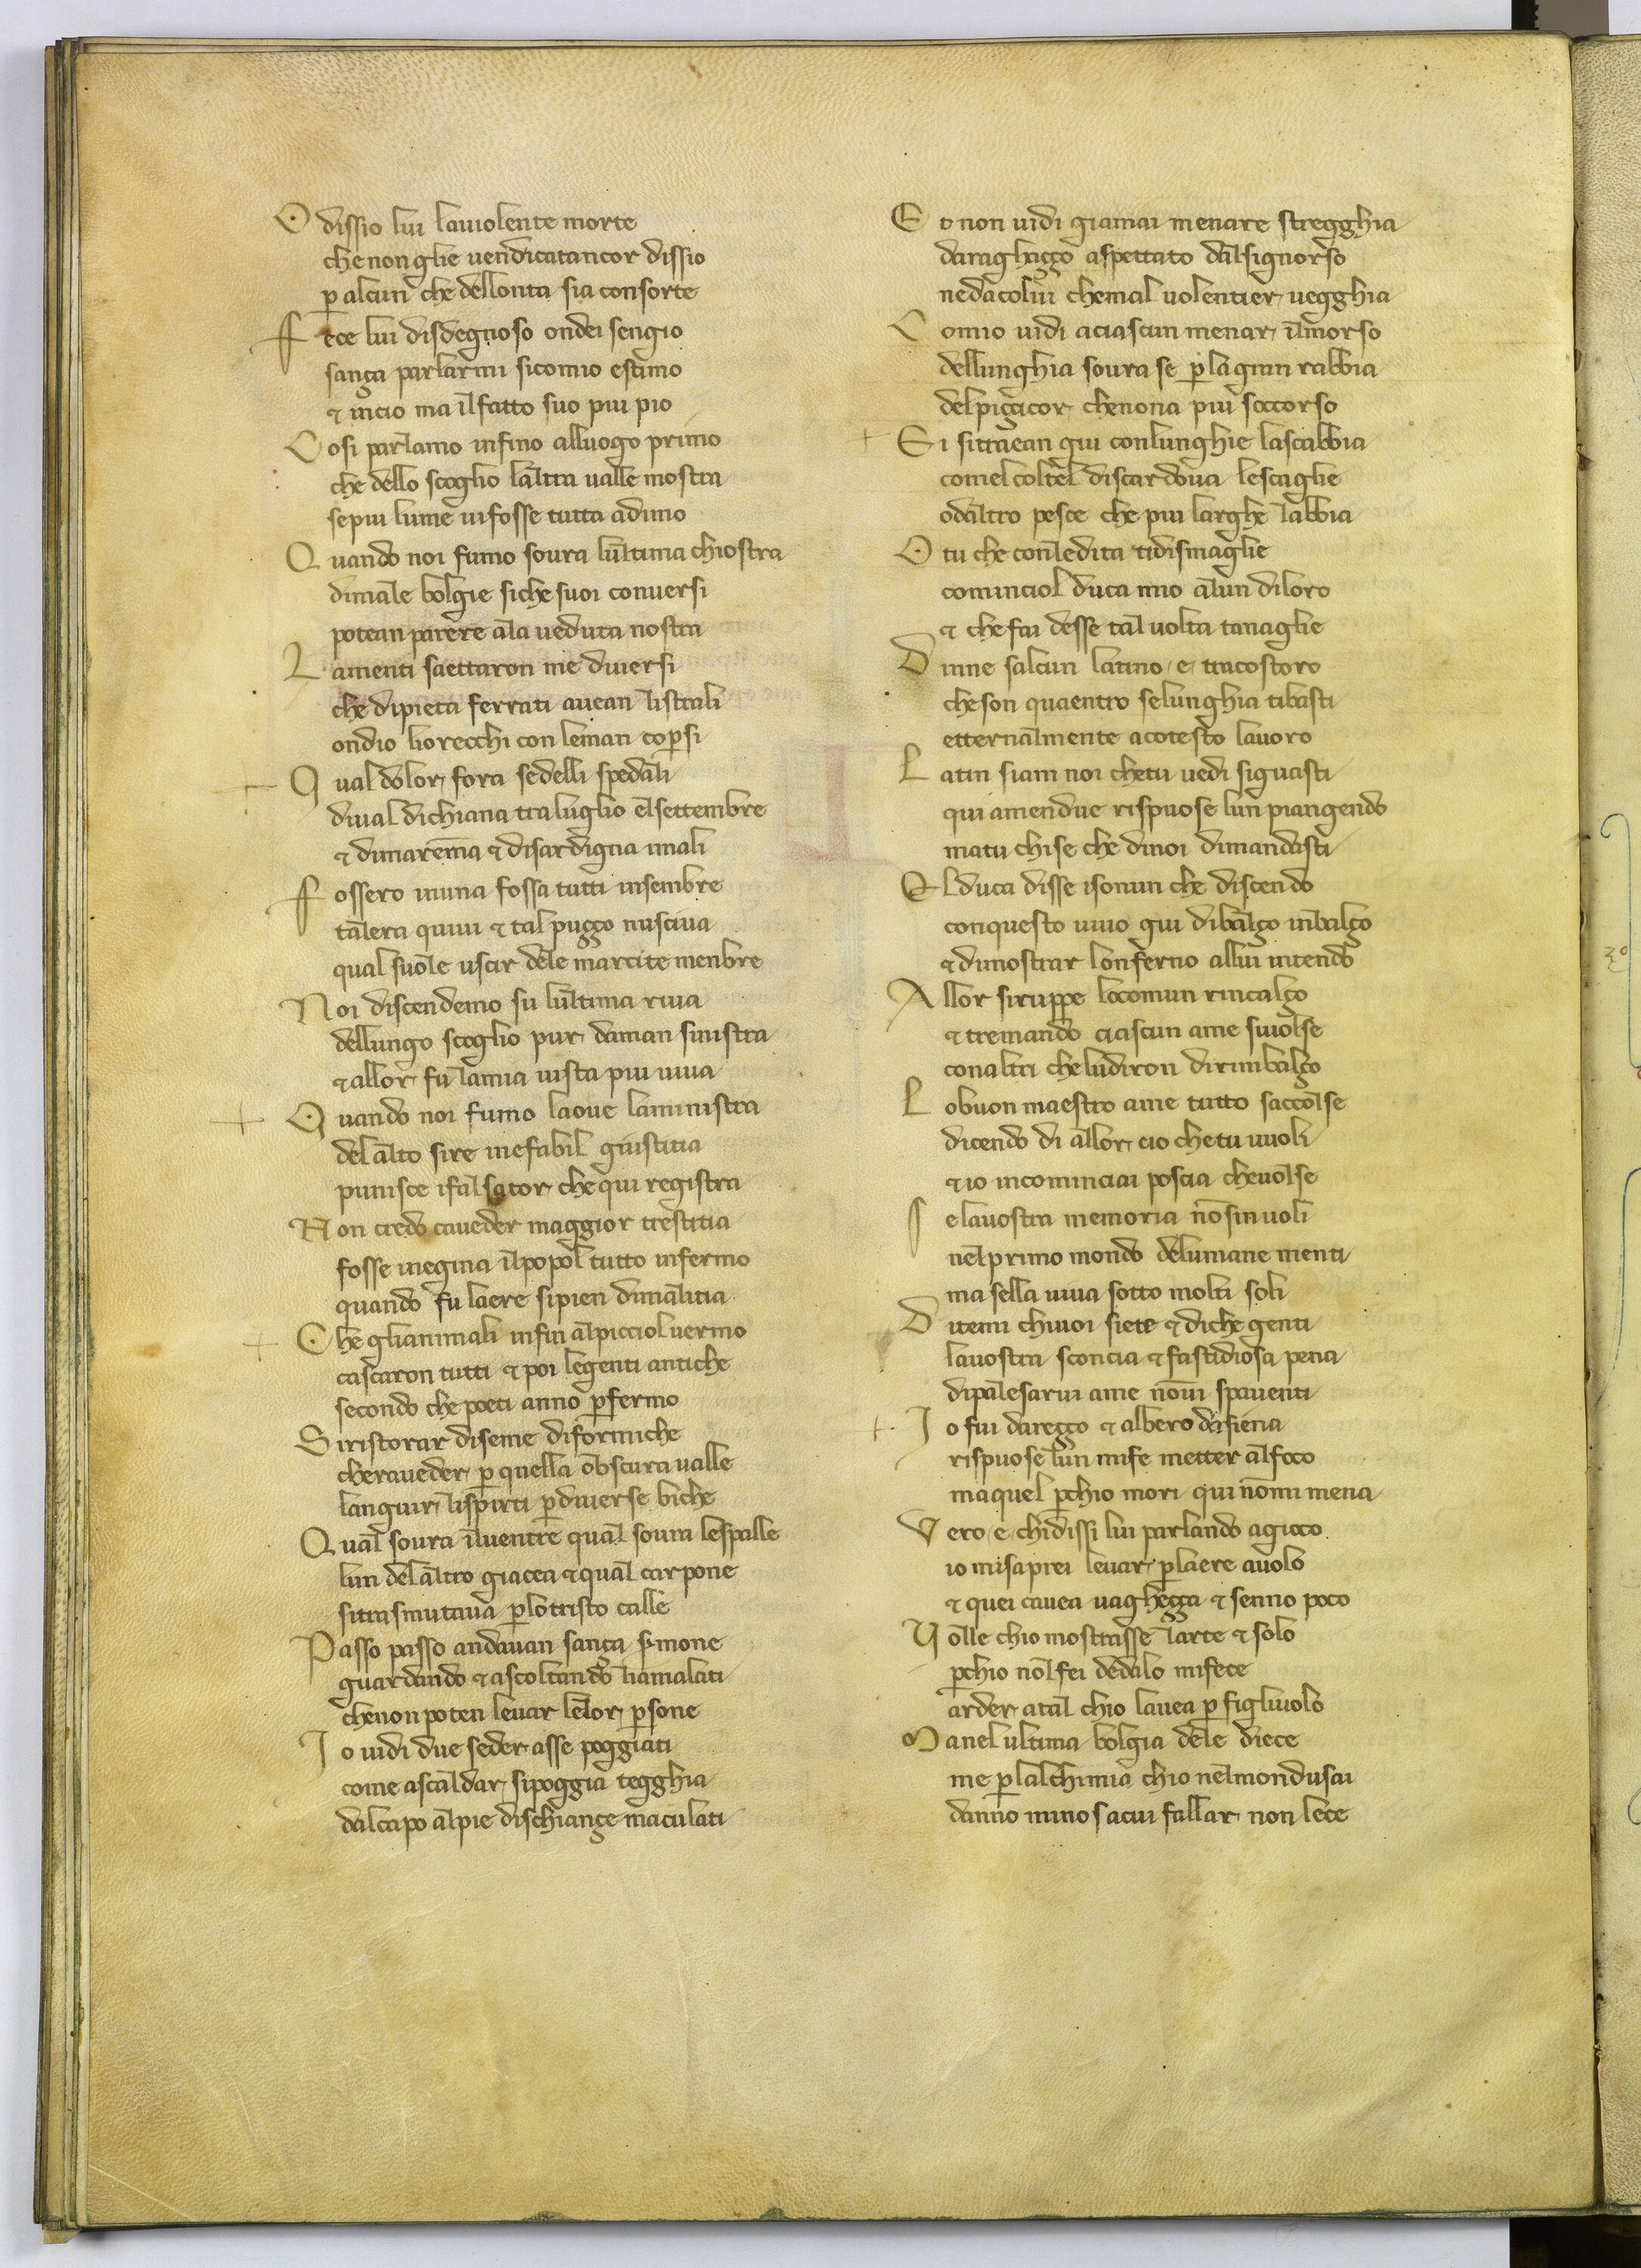 O dissio lui lauiolente morte
che non glie uendicatancor dissio
p alcun che dellonta sia consorte
Fece lui disdegnoso ondei sengio
sança parlarmi sicomio estimo
& incio ma ilfatto suo piu pio
Cosi parlamo infino alluogo primo
che dello scoglio laltra ualle mostra
sepiu lume uifosse tutta adimo
Quando noi fumo soura lultima chiostra
dimale bolgie siche suoi conuersi
potean parere ala ueduta nostra
Lamenti saettaron me diuersi
che dipieta ferrati auean listrali
ondio liorecchi con leman copsi
Qual dolor fora sedelli spedali
diual dichiana tra luglio elsettembre
& dimarema & disardigna imali
Fossero inuna fossa tutti insembre
talera quiui & tal puçço nusciua
qual suole uscir dele marcite menbre
Noi discendemo su lultima riua
dellungo scoglio pur daman sinistra
& allor fu lamia uista piu uiua
Quando noi fumo laoue laministra
del alto sire inefabil giustitia
punisce ifalsator che qui registra
Non credo caueder maggior trestitia
fosse inegina ilpopol tutto infermo
quando fu laere sipien dimalitia
Che glianimali infin alpicciol uermo
cascaron tutti & poi legenti antiche
secondo che poeti anno pfermo
Siristorar diseme diformiche
cheraueder p quella obscura ualle
languir lispirti pdiuerse biche
Qual soura iluentre qual soura lespalle
lun delaltro giacea & qual carpone
sitrasmutaua plotristo calle
Passo passo andauan sança smone
guardando & ascoltando liamalati
chenon poten leuar lelor psone
Io uidi due seder asse poggiati
come ascaldar sipoggia tegghia
dalcapo alpie dischiançe maculati
Eo non uidi giamai menare stregghia
daraghaçço aspettato dalsignorso
nedacolui chemal uolentier uegghia
Comio uidi aciascun menar ilmorso
dellunghia soura se plagran rabbia
delpiçicor chenona piu soccorso
Si sittraean giu conlunghie lascabbia
comel coltel discardoua lescaglie
odaltro pesce che piu larghe labbia
O tu che conledita tidismaglie
cominciol duca mio alun diloro
& che fai desse tal uolta tanaglie
Dinne salcun latino e tracostoro
cheson quaentro selunghia tibasti
etternalmente acotesto lauoro
Latin siam noi chetu uedi siguasti
qui amendue rispuose lun piangendo
matu chise che dinoi dimandasti
El duca disse isonun che discendo
conquesto uiuo giu dibalço inbalço
& dimostrar lonferno allui intendo
Allor siruppe locomun rincalço
& tremando ciascun ame siuolse
conaltri cheludiron dirimbalço
Lobuon maestro ame tutto saccolse
dicendo di allor cio chetu uuoli
& io incominciai poscia cheuolse
Se lauostra memoria nōsinuoli
nelprimo mondo delumane menti
ma sella uiua sotto molti soli
Ditemi chiuoi siete & diche genti
lauostra sconcia & fastidiosa pena
dipalesarui ame nōui spauenti
Io fui dareçço & albero dasiena
rispuose lun mife metter alfoco
maquel pchio mori qui nōmi mena
Vero e chidissi lui parlando agioco
io misaprei leuar plaere auolo
& quei cauea uagheçça & senno poco
Volle chio mostrasse larte & solo
pchio nōlfei dedalo mifece
arder atal chio lauea p figliuolo
Manel ultima bolgia dele diece
me plalchimia chio nelmondusai
danno minosacui fallar non lece